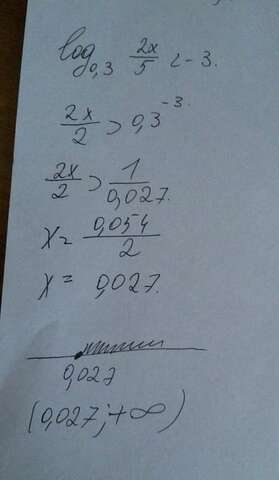 log₀,₃ 2x/5 < -3.
2x/2 > 0,3⁻³.
2x/2 > 1/0,027.
x = 0,054/2
x = 0,027.
0,027
(0,027; +∞)